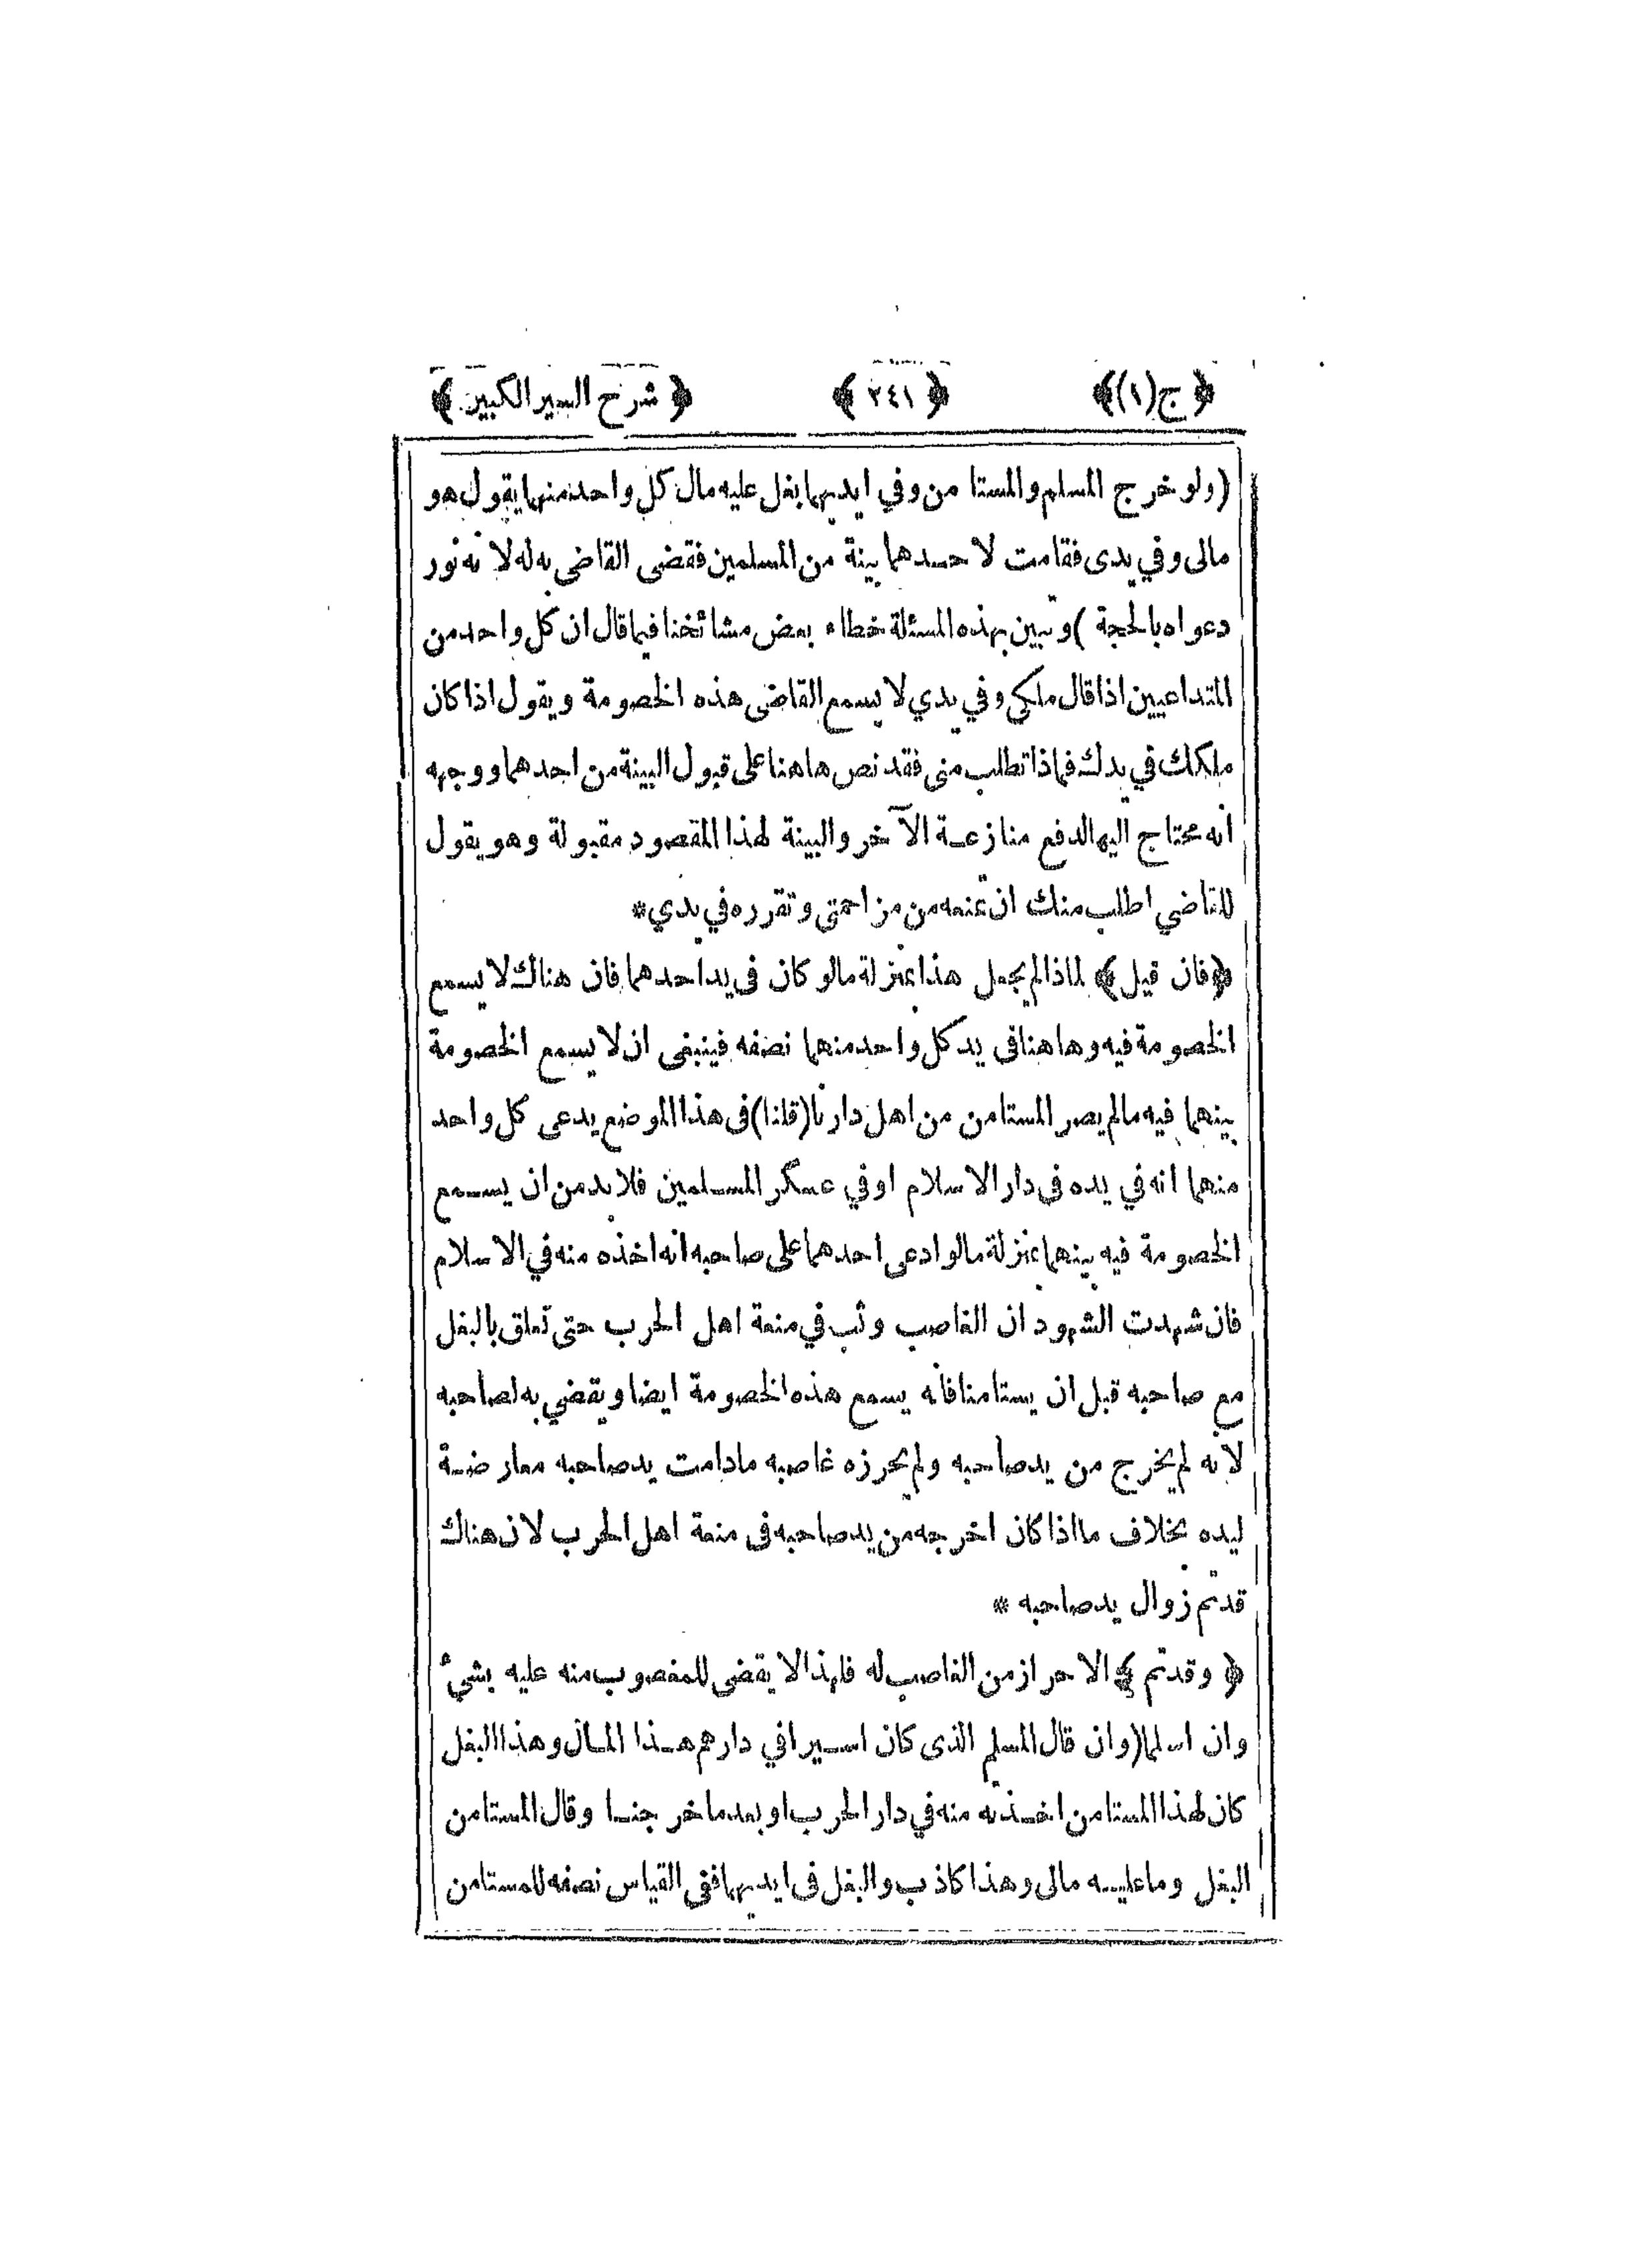 ﴿ ج(١)﴾ ﴿ ٢٤١ ﴾ ﴿ شرح السير الكبير ﴾
(ولو خرج المسلم والمستا من وفي ايديهما بغل عليه مال كل واحد منهما يقول هو
مالى وفي يدى فقامت لا حدهما بينة من المسلمين فقضى القاضى به له لا نه نور
دعواه بالحجة )وتبين بهذه المسئلة خطاء بعض مشائخنا فيما قال ان كل واحد من
المتداعيين اذا قال ملكي وفي يدي لا يسمع القاضى هذه الخصومة ويقول اذا كان
ملكك في يدك فماذا تطلب منى فقد نص هاهنا على قبول البينة من احدهما ووجهه
أنه محتاج اليها لدفع منازعة الآخر والبينة لهذا المقصود مقبولة وهو يقول
للقاضي اطلب منك ان تمنعه من مزاحمتى وتقرره في يدي*
﴿فان قيل﴾ لماذا لم يجعل هذا بمنزلة مالو كان فى يد احدهما فان هناك لا يسمع
الخصومة فيه وهاهنا فى يد كل واحد منهما نصفه فينبغى ان لا يسمع الخصومة
بينهما فيه مالم يصر المستامن من اهل دارنا(قلنا)فى هذا الموضع يدعى كل واحد
منهما انه في يده فى دار الاسلام او في عسكر المسلمين فلا بد من ان يسمع
الخصومة فيه بينهما بمنزلة مالو ادعى احدهما على صاحبه انه اخذه منه في الاسلام
فان شهدت الشهود ان الغاصب وثب في منعة اهل الحرب حتى تعلق بالبغل
مع صاحبه قبل ان يستامنا فانه يسمع هذه الخصومة ايضا ويقضي به لصاحبه
لانه لم يخرج من يد صاحبه ولم يحرزه غاصبه مادامت يد صاحبه معارضة
ليده بخلاف ما اذا كان اخرجه من يد صاحبه فى منعة اهل الحرب لان هناك
قد تم زوال يد صاحبه *
﴿ وقد تم ﴾ الاحراز من الغاصب له فلهذا لا يقضى للمغصوب منه عليه بشئ
وان اسلما(وان قال المسلم الذى كان اسيرا في دارهم هذا المال وهذا البغل
كان لهذا المستامن اخذته منه في دار الحرب او بعد ما خر جنا وقال المستامن
البغل وما عليه مالى وهذا كاذب والبغل فى ايديهما ففى القياس نصفه للمستامن